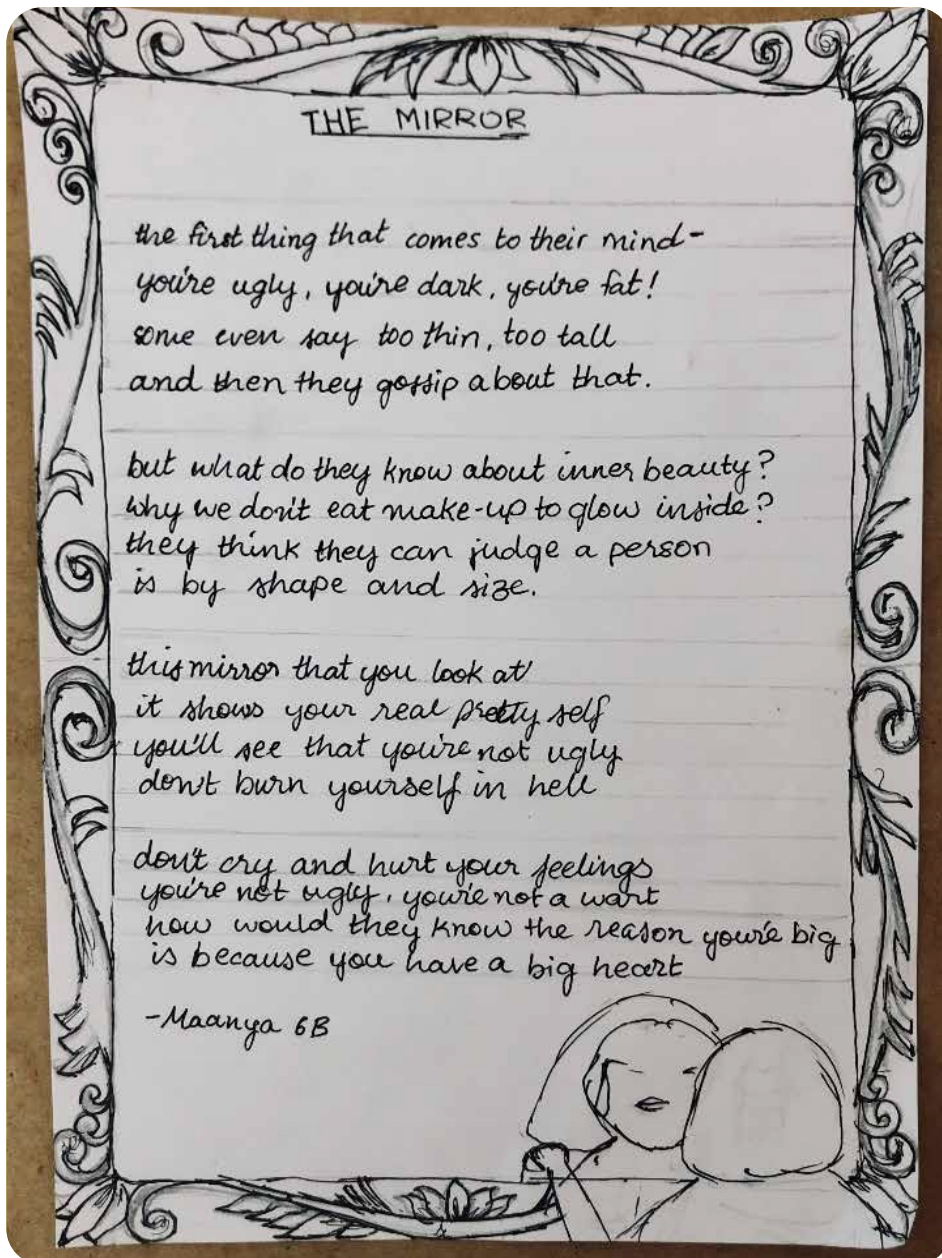 THE MIRROR
the first thing that comes to their mind-
you're ugly, you're dark, you're fat!
some even say too thin, too tall
and then they gossip about that.
but what do they know about inner beauty?
why we don't eat make-up to glow inside?
they think they can judge a person
is by shape and size.
this mirror that you look at
it shows your real pretty self
you'll see that you're not ugly
don't burn yourself in hell
don't cry and hurt your feelings
you're not ugly, you're not a wart
how would they know the reason you're big
is because you have a big heart
-Maanya 6B